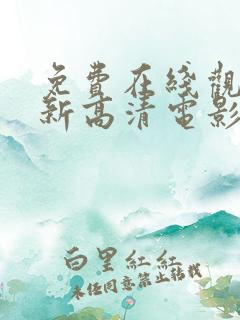 免費在綫觀
新高清電影
白里紅紅
未经同意禁止转载